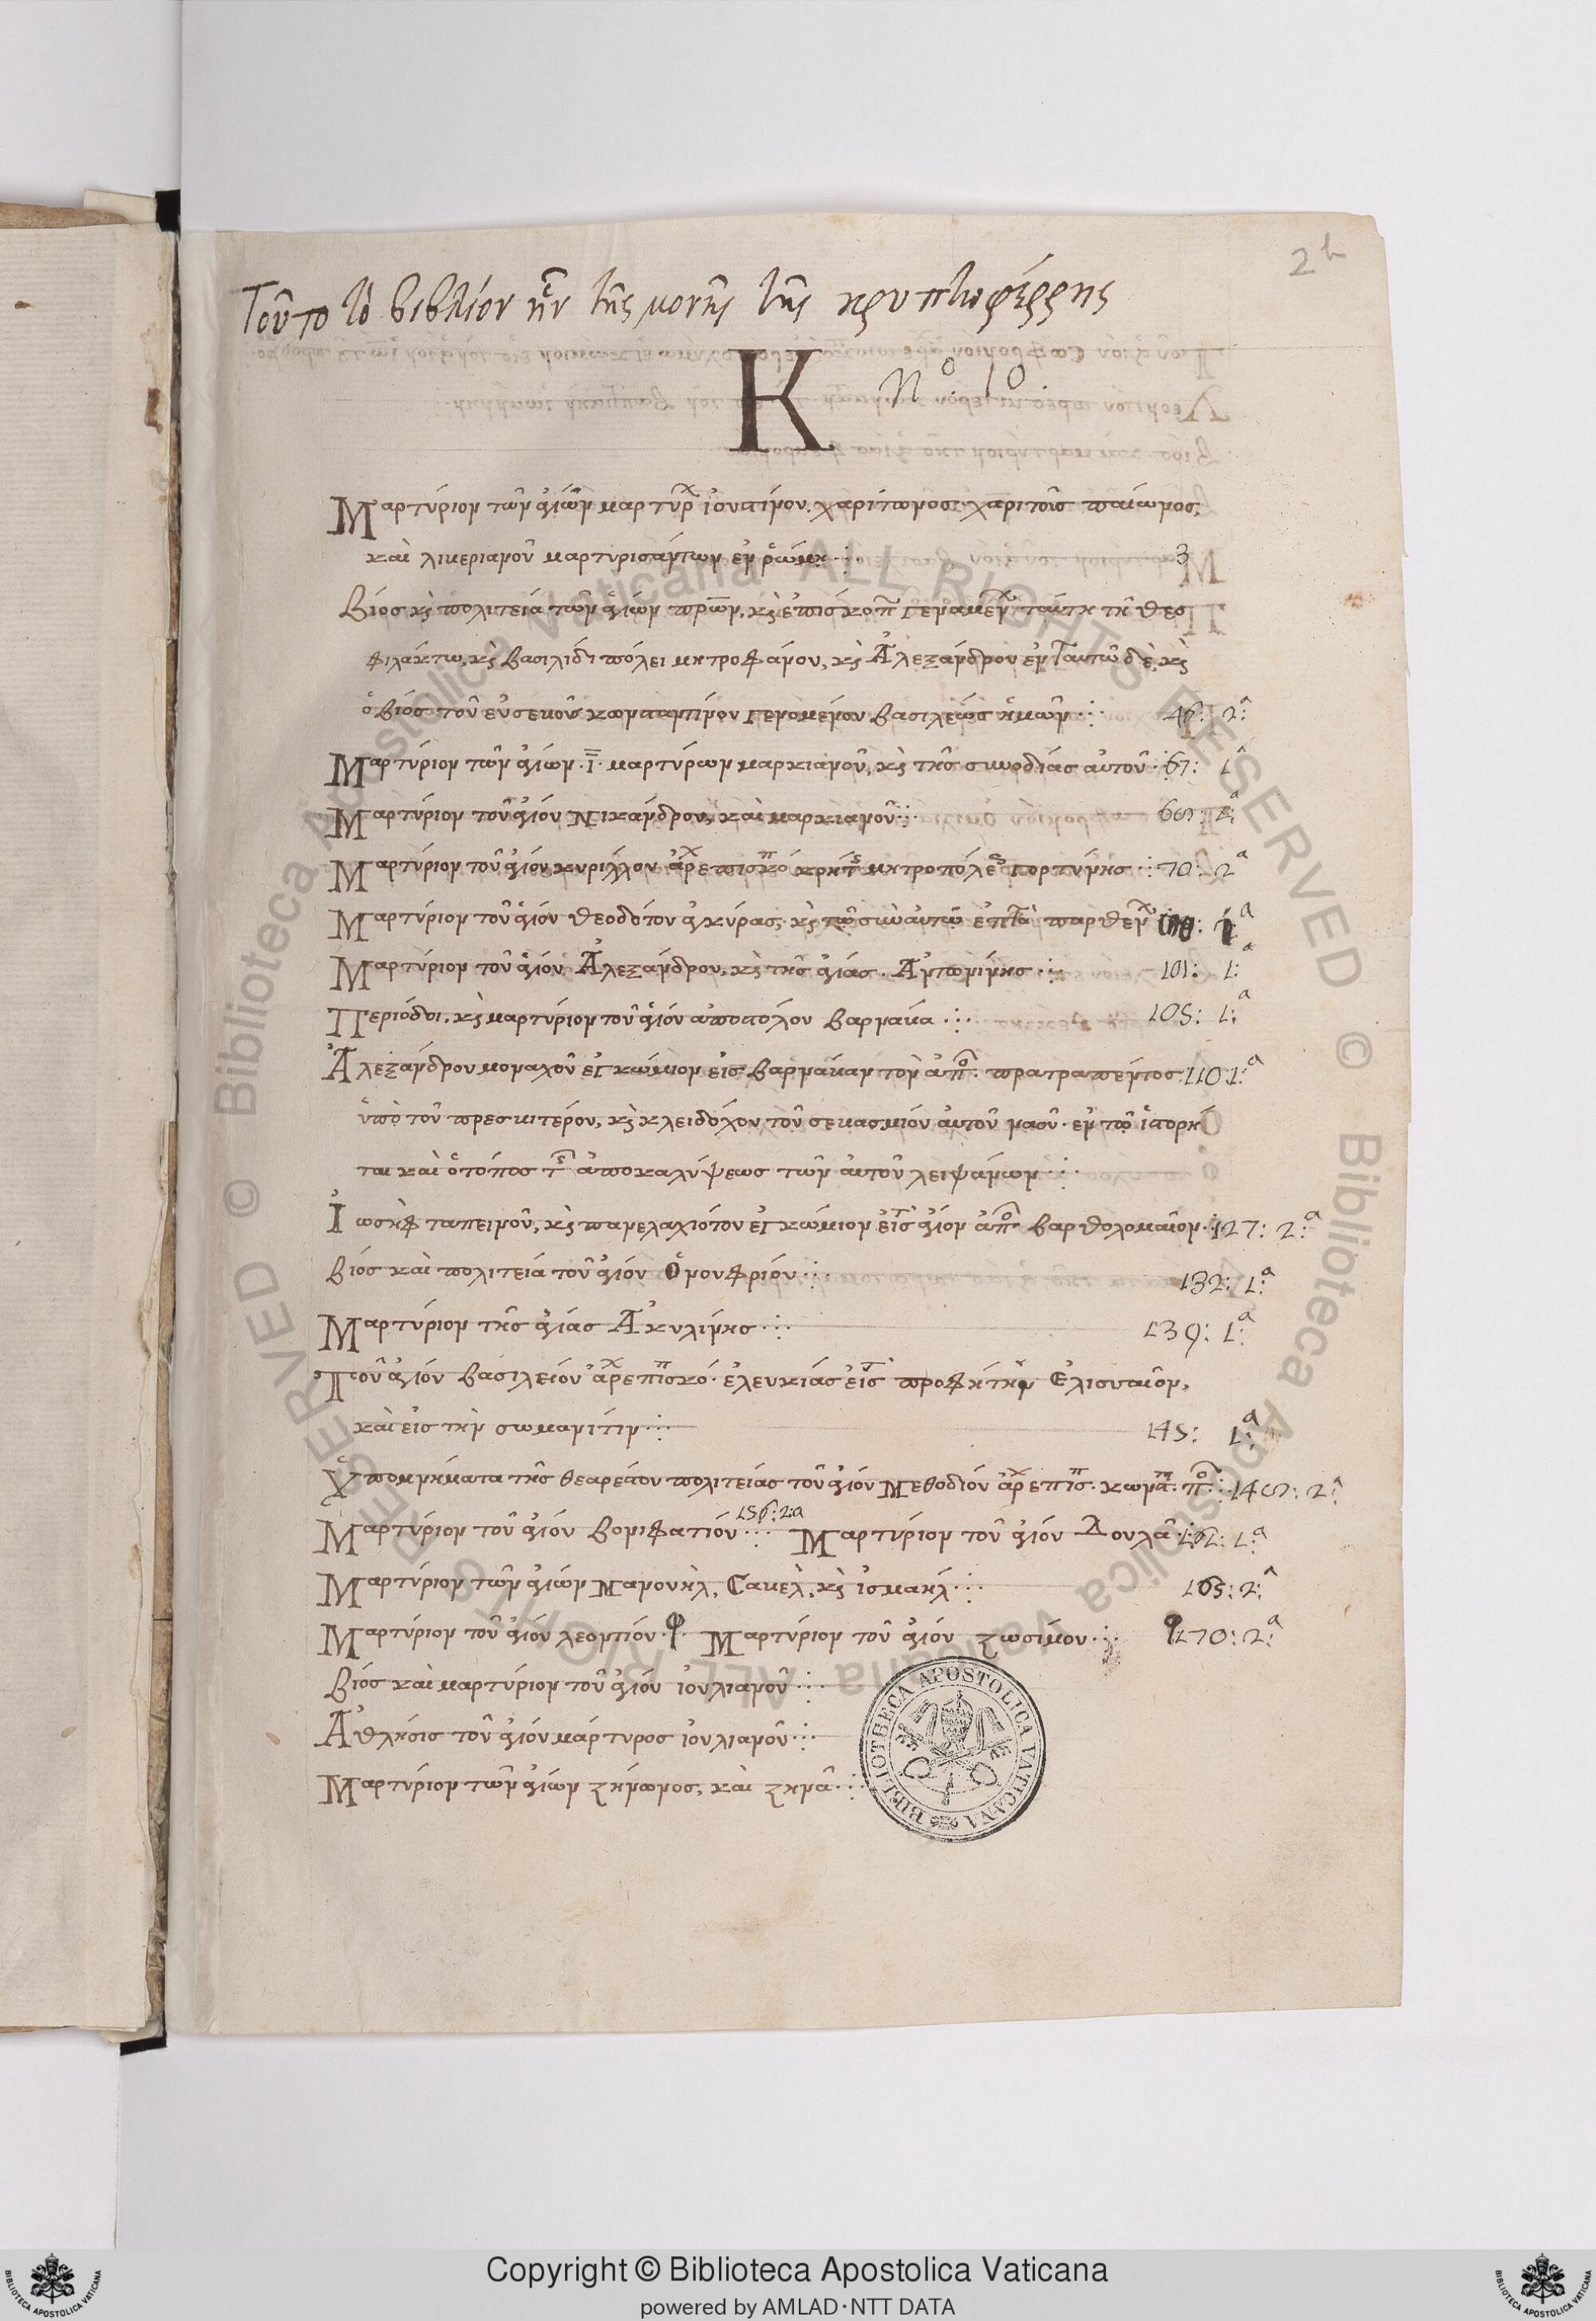 2b
Τοῦτο τὸ βιβλίον ἦν τῆς μονῆς τῆς κρυπτοφέρρης
K No. 10.
Μαρτύριον τῶν ἁγίων μαρτύρ ἰουστίνου. χαρίτωνος. χαριτοῦς παίωνος,
καὶ λιβεριανοῦ μαρτυρισάντων ἐν ῥώμη 3
Βίος κ πολιτεία τῶν ἁγίων πρων, κ ἐπισκόπ γεναμεν ταύτη τῆ θεο
φιλάκτω, κ βασιλίδι πόλει μητροφάνου, κ Ἀλεξάνδρου ἐν ταυτῶ δὲ, κ
ὁ βίος τοῦ εὐσεβοῦς κωνσταντίνου γενομένου βασιλεώς ἡμῶν 46: 2a
Μαρτύριον τῶν ἁγίων ι μαρτύρων μαρκιανοῦ, κ τῆς συνοδίας αὐτοῦ 67: 1a
Μαρτύριον τοῦ ἁγίου Νικάνδρου, καὶ μαρκιανοῦ 69: 1a
Μαρτύριον τοῦ ἁγίου κυρίλλου ἀρχεπισκό κρητς μητροπόλε γορτύνης 70: 2a
Μαρτύριον τοῦ ἁγίου θεοδότου ἀγκύρας, κ τῶν σὺν αὐτῶ ἑπτὰ παρθεν
Μαρτύριον τοῦ ἁγίου Ἀλεξάνδρου, κ τῆς ἁγίας Ἀντωνίνης 101: 1a
Περιόδοι, κ μαρτύριον τοῦ ἁγίου ἀποστόλου βαρνάβα 105: 1a
Ἀλεξάνδρου μοναχοῦ ἐγκώμιον εἰς βαρνάβαν τὸν ἀπο. πρατραπέντος 110: 1a
ὑπὸ τοῦ πρεσβιτέρου, κ κλειδόχου τοῦ σεβασμίου αὐτοῦ ναοῦ. ἐν τῶ ἱστορῆ
ται καὶ ὁ τόπος τς ἀποκαλύψεως τῶν αὐτοῦ λειψάνων
Ἰωσὴφ ταπεινοῦ, κ πανελαχιότου ἐγκώμιον εἰς τ ἅγιον ἀπο. βαρθολομαῖον 127: 2a
Βίος καὶ πολιτεία τοῦ ἁγίου Ὀνουφρίου 132: 1a
Μαρτύριον τῆς ἁγίας Ἀκυλίνης 139: 1a
Τοῦ ἁγίου βασιλείου ἀρχεπισκό ἐλευκίας εἰς τ προφήτην Ἐλισσαῖον,
καὶ εἰς τὴν σωμανίτιν 145: 1a
Ὑπομνήματα τῆς θεαρέστου πολιτείας τοῦ ἁγίου Μεθοδίου ἀρχεπισ. κωνστ. π 149: 2a
Μαρτύριον τοῦ ἁγίου βονιφατίου 156: 2a Μαρτύριον τοῦ ἁγίου Δουλᾶ 162: 1a
Μαρτύριον τῶν ἁγίων Μανουὴλ, Σαβελ, κ ἰσμαὴλ 165: 2a
Μαρτύριον τοῦ ἁγίου λεοντίου Μαρτύριον τοῦ ἁγίου ζωσίμου 170: 2a
Βίος καὶ μαρτύριον τοῦ ἁγίου ἰουλιανοῦ
Ἄθλησις τοῦ ἁγίου μάρτυρος ἰουλιανοῦ
Μαρτύριον τῶν ἁγίων ζήνωνος, καὶ ζηνᾶ
BIBLIOTECA APOSTOLICA VATICANA
© Biblioteca Apostolica Vaticana ALL RIGHTS RESERVED © Biblioteca Apostolica Vaticana ALL RIGHTS RESERVED
Copyright © Biblioteca Apostolica Vaticana
powered by AMLAD·NTT DATA
BIBLIOTECA APOSTOLICA VATICANA
BIBLIOTECA APOSTOLICA VATICANA